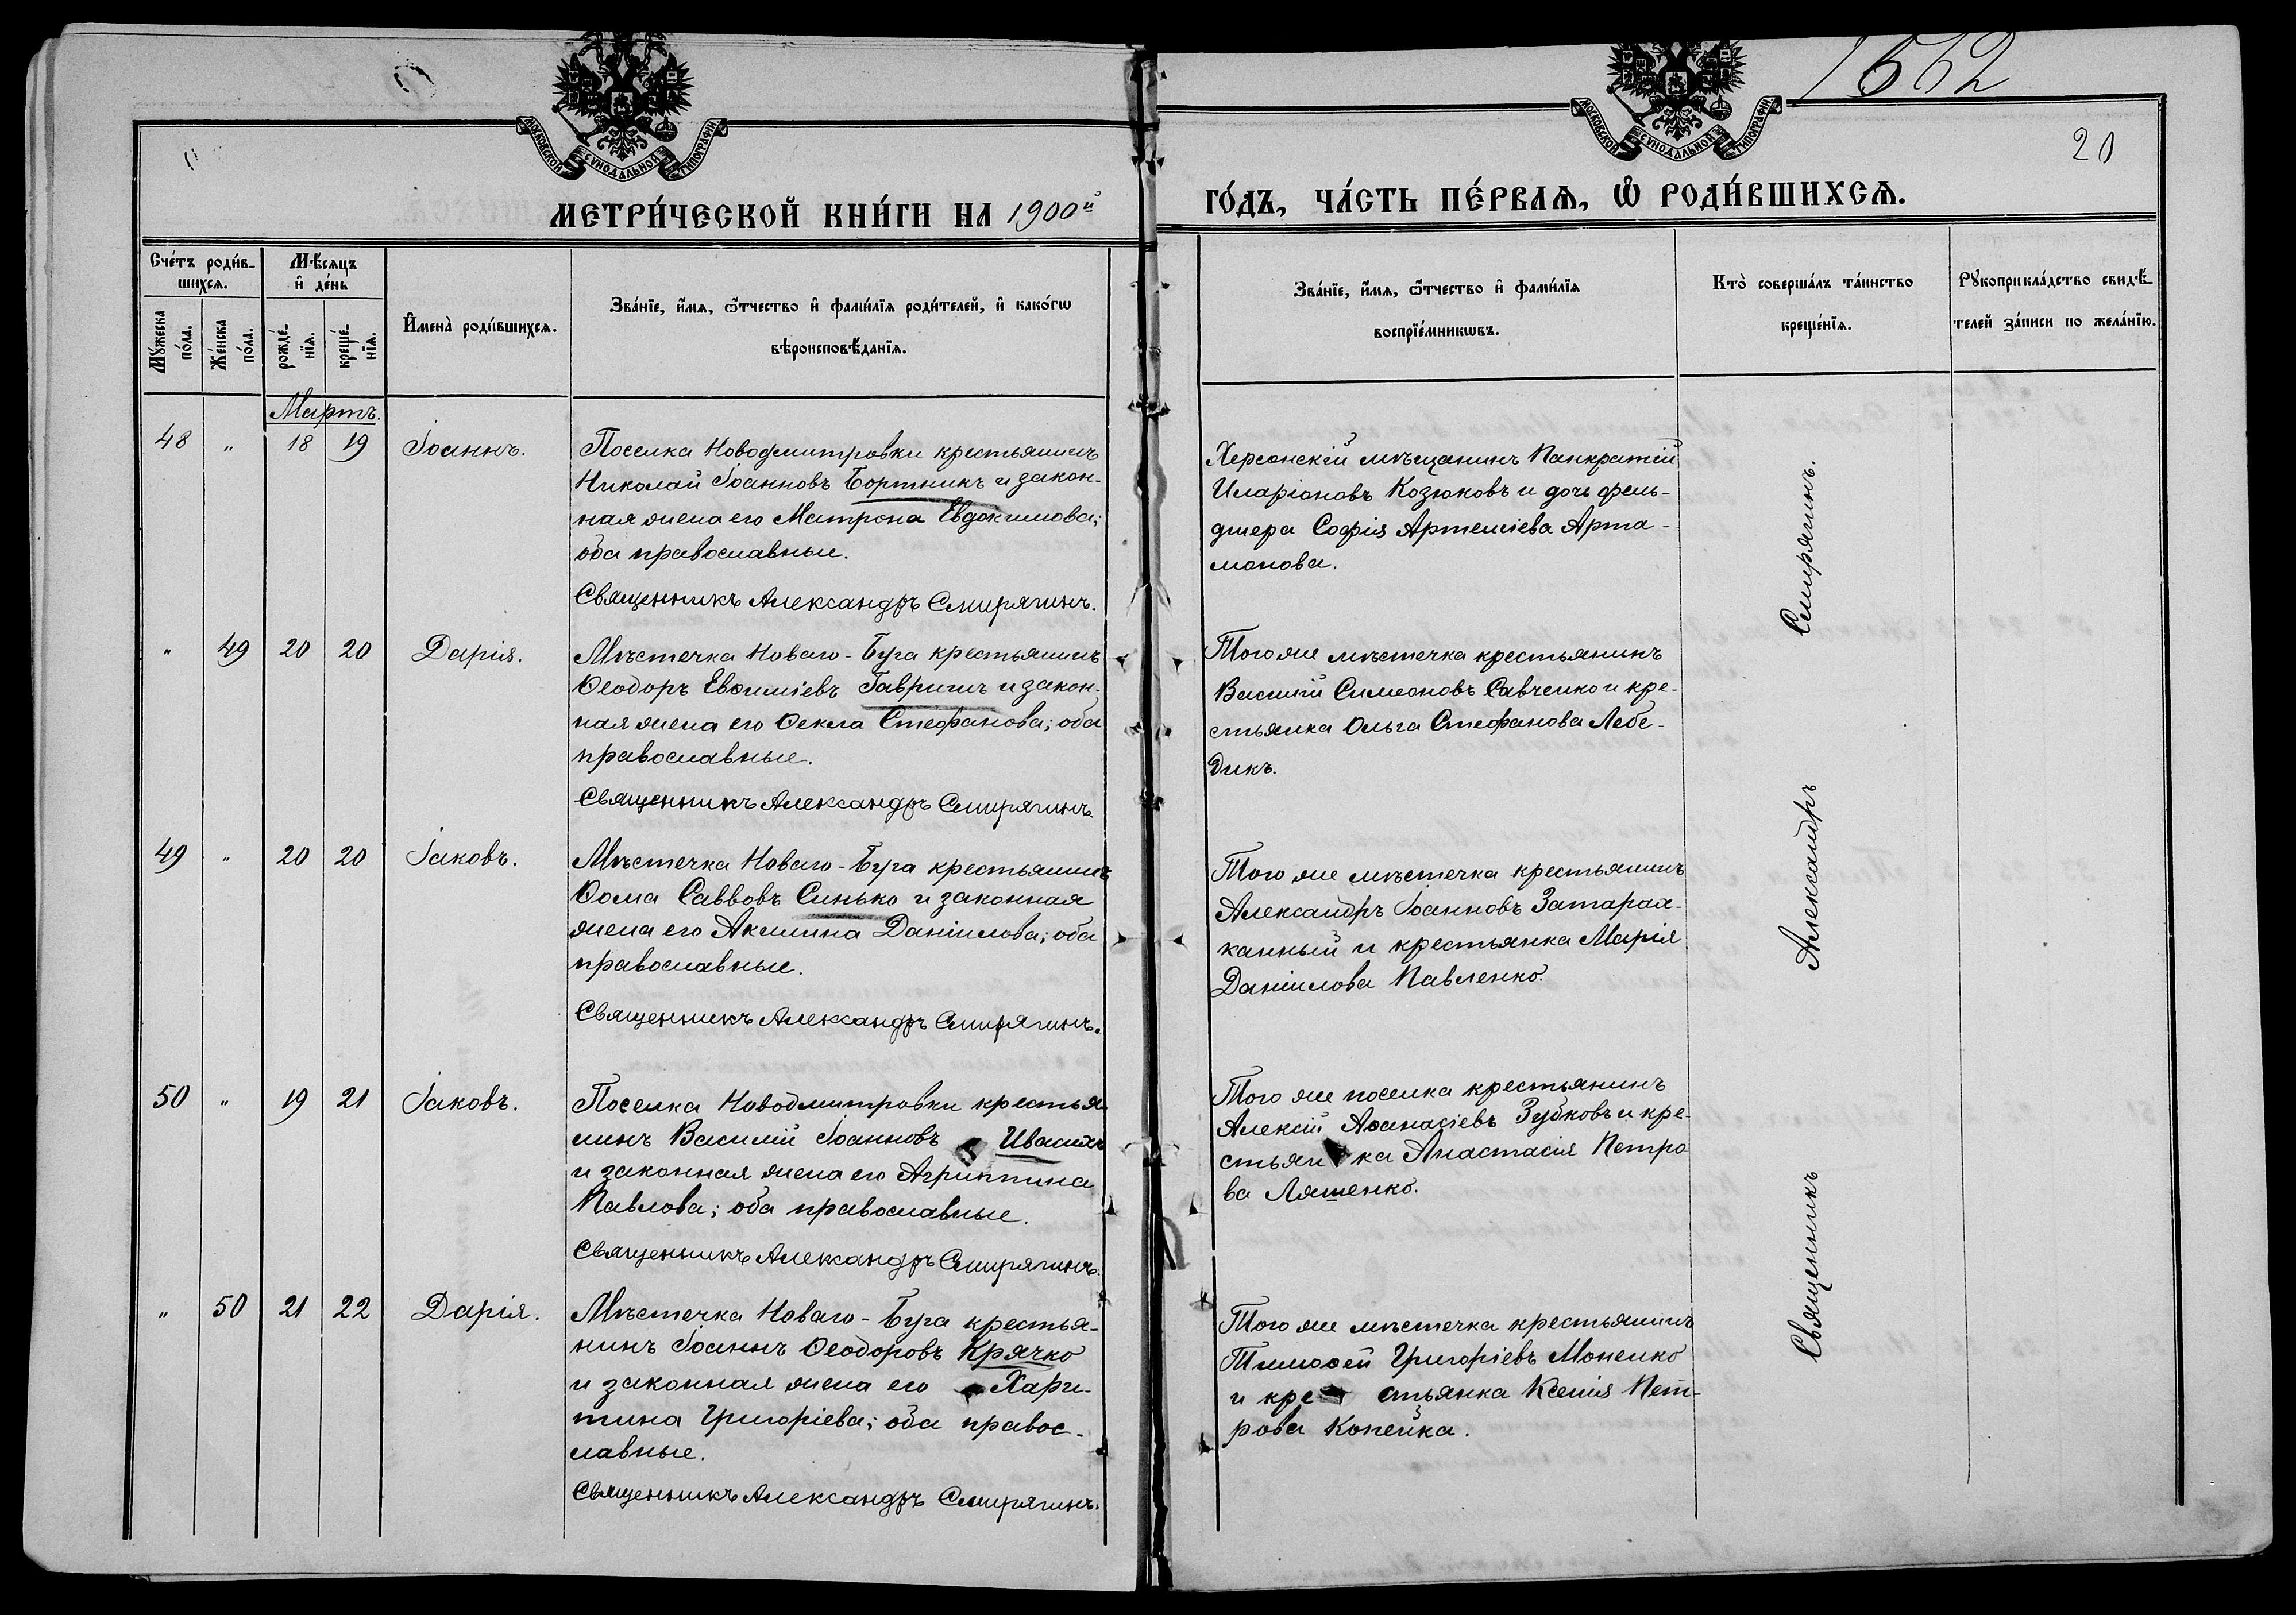 1562
20
МОСКОВСКОЙ СѴНОДАЛЬНОЙ ТИПОГРАФІИ
МОСКОВСКОЙ СѴНОДАЛЬНОЙ ТИПОГРАФІИ
МЕТРИ́ЧЕСКОЙ КНИ́ГИ НА 1900й
ГО́ДЪ, ЧА́СТЬ ПЕ́РВАѦ, Ѡ҆ РОДИ́ВШИХСѦ.
Сче́тъ роди́в-
шихсѧ.
Мѣ́сѧцъ
и҆ де́нь
Мꙋ́жеска
по́ла.
Же́нска
по́ла.
рожде́-
нїѧ.
креще́-
нїѧ.
И҆мена̀ роди́вшихсѧ.
Зва́нїе, и҆́мѧ, ѻ҆́тчество и҆ фами́лїѧ роди́телей, и҆ како́гѡ
вѣроисповѣ́данїѧ.
Зва́нїе, и҆́мѧ, ѻ҆́тчество и҆ фами́лїѧ
воспрїе́мникѡвъ.
Кто̀ соверша́лъ та́инство
креще́нїѧ.
Рꙋкоприкла́дство свидѣ́-
телей за́писи по жела́нїю.
Мартъ.
48 " 18 19 Іоаннъ.
Поселка Новодмитровки крестьянинъ
Николай Іоанновъ Бортникъ и закон-
ная жена его Матрона Евдокимова;
оба православные.
Священникъ Александръ Смирягинъ.
Херсонскій мѣщанинъ Панкратій
Иларіоновъ Козюковъ и дочь фель-
дшера Софія Артеміева Арта-
монова.
" 49 20 20 Дарія.
Мѣстечка Новаго-Буга крестьянинъ
Ѳеодоръ Евѳиміевъ Гавришъ и закон-
ная жена его Ѳекла Стефанова; оба
православные.
Священникъ Александръ Смирягинъ.
Того же мѣстечка крестьянинъ
Василій Симеоновъ Савченко и кре-
стьянка Ольга Стефанова Лебе-
дикъ.
49 " 20 20 Іаковъ.
Мѣстечка Новаго-Буга крестьянинъ
Ѳома Саввовъ Синько и законная
жена его Акилина Даніилова; оба
православные.
Священникъ Александръ Смирягинъ.
Того же мѣстечка крестьянинъ
Александръ Іоанновъ Затарах-
канный и крестьянка Марія
Даніилова Павленко.
50 " 19 21 Іаковъ.
Поселка Новодмитровки крестья-
нинъ Василій Іоанновъ Ивасихъ
и законная жена его Агриппина
Павлова; оба православные.
Священникъ Александръ Смирягинъ.
Того же поселка крестьянинъ
Алексій Аѳанасіевъ Зубковъ и кре-
стьян ка Анастасія Петро
ва Ляшенко.
" 50 21 22 Дарія.
Мѣстечка Новаго-Буга крестья-
нинъ Іоаннъ Ѳеодоровъ Крячко
и законная жена его Хари-
тина Григоріева; оба правос-
лавные.
Священникъ Александръ Смирягинъ.
Того же мѣстечка крестьянинъ
Тимоѳей Григоріевъ Моненко
и кре стьянка Ксенія Пет-
рова Копейка.
Священникъ Александръ Смирягинъ.